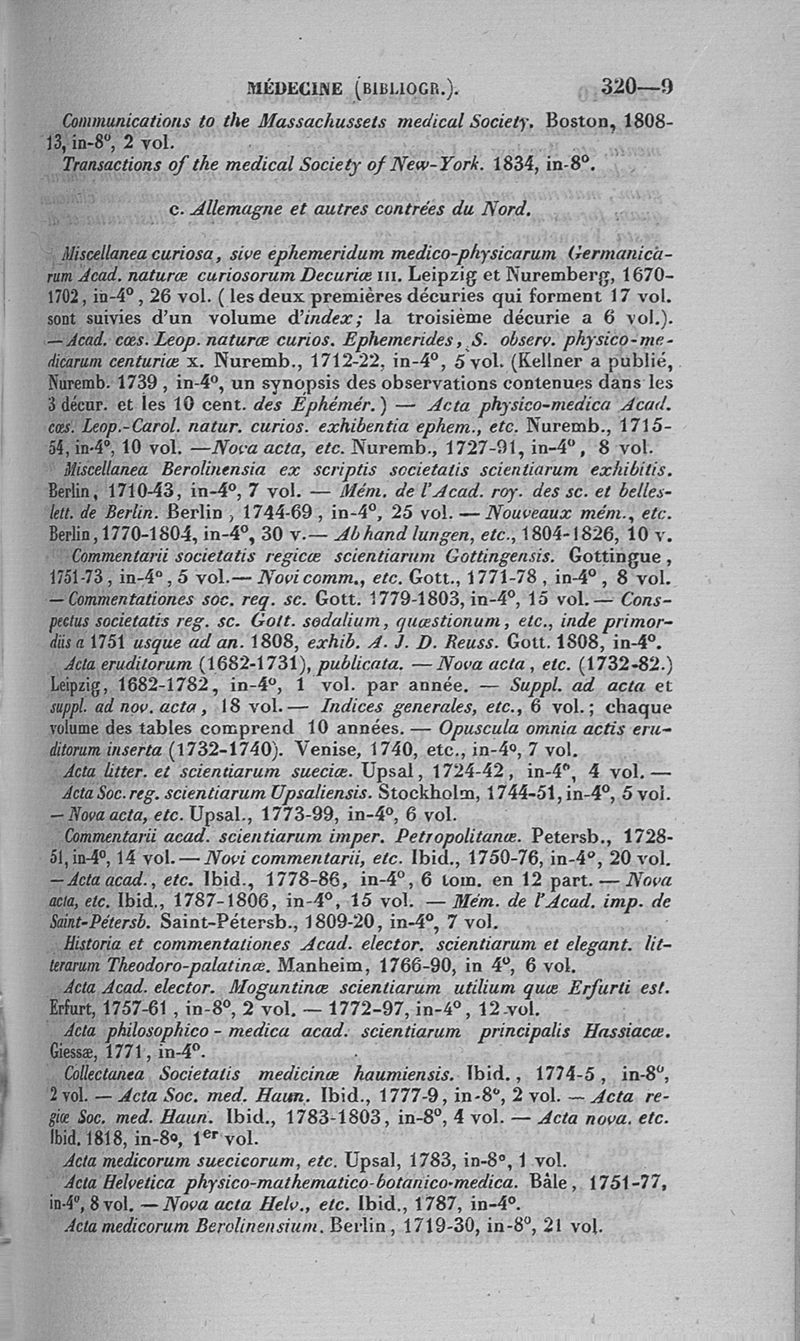 MÉDECINE (BIBLIOGR.). 320—9
Communications to the Massachussets medical Society. Boston, 1808-
13, in-8º, 2 vol.
Transactions of the medical Society of New-York. 1834, in-8º.
c. Allemagne et autres contrées du Nord.
Miscellanea curiosa, sive ephemeridum medico-physicarum Germanica-
rum Acad. naturæ curiosorum Decuriæ III. Leipzig et Nuremberg, 1670-
1702, in-4º, 26 vol. (les deux premières décuries qui forment 17 vol.
sont suivies d'un volume d'index; la troisième décurie a 6 vol.).
— Acad. cæs. Leop. naturæ curios. Ephemerides, S. observ. physico-me-
dicarum centuriæ x. Nuremb., 1712-22, in-4º, 5 vol. (Kellner a publié,
Nuremb. 1739, in-4º, un synopsis des observations contenues dans les
3 décur. et les 10 cent. des Éphémér.) — Acta physico-medica Acad.
cæs. Leop.-Carol. natur. curios. exhibentia ephem., etc. Nuremb., 1715-
54, in-4º, 10 vol. —Nova acta, etc. Nuremb., 1727-91, in-4º, 8 vol.
Miscellanea Berolinensia ex scriptis societatis scientiarum exhibitis.
Berlin, 1710-43, in-4º, 7 vol. — Mém. de l'Acad. roy. des sc. et belles-
lett. de Berlin. Berlin, 1744-69, in-4º, 25 vol. — Nouveaux mém., etc.
Berlin, 1770-1804, in-4º, 30 v.— Abhand lungen, etc., 1804-1826, 10 v.
Commentarii societatis regicæ scientiarum Gottingensis. Gottingue,
1751-73, in-4º, 5 vol.— Novi comm., etc. Gott., 1771-78, in-4º, 8 vol.
— Commentationes soc. req. sc. Gott. 1779-1803, in-4º, 15 vol. — Cons-
pectus societatis reg. sc. Gott. sodalium, quæstionum, etc., inde primor-
diis a 1751 usque ad an. 1808, exhib. A. J. D. Reuss. Gott. 1808, in-4º.
Acta eruditorum (1682-1731), publicata. — Nova acta, etc. (1732-82.)
Leipzig, 1682-1782, in-4º, 1 vol. par année. — Suppl. ad acta et
suppl. ad nov. acta, 18 vol.— Indices generales, etc., 6 vol.; chaque
volume des tables comprend 10 années. — Opuscula omnia actis eru-
ditorum inserta (1732-1740). Venise, 1740, etc., in-4º, 7 vol.
Acta litter. et scientiarum sueciæ. Upsal, 1724-42, in-4º, 4 vol. —
Acta Soc. reg. scientiarum Upsaliensis. Stockholm, 1744-51, in-4º, 5 vol.
— Nova acta, etc. Upsal., 1773-99, in-4º, 6 vol.
Commentarii acad. scientiarum imper. Petropolitanæ. Petersb., 1728-
51, in-4º, 14 vol. — Novi commentarii, etc. Ibid., 1750-76, in-4º, 20 vol.
— Acta acad., etc. Ibid., 1778-86, in-4º, 6 tom. en 12 part. — Nova
acta, etc. Ibid., 1787-1806, in-4º, 15 vol. — Mém. de l'Acad. imp. de
Saint-Pétersb. Saint-Pétersb., 1809-20, in-4º, 7 vol.
Historia et commentationes Acad. elector. scientiarum et elegant. lit-
terarum Theodoro-palatinæ. Manheim, 1766-90, in 4º, 6 vol.
Acta Acad. elector. Moguntinæ scientiarum utilium quæ Erfurti est.
Erfurt, 1757-61, in-8º, 2 vol. — 1772-97, in-4º, 12 vol.
Acta philosophico-medica acad. scientiarum principalis Hassiacæ.
Giessæ, 1771, in-4º.
Collectanea Societatis medicinæ haumiensis. Ibid., 1774-5, in-8º,
2 vol. — Acta Soc. med. Haun. Ibid., 1777-9, in-8º, 2 vol. — Acta re-
giæ Soc. med. Haun. Ibid., 1783-1803, in-8º, 4 vol. — Acta nova. etc.
Ibid. 1818, in-8º, 1er vol.
Acta medicorum suecicorum, etc. Upsal, 1783, in-8º, 1 vol.
Acta Helvetica physico-mathematico-botanico-medica. Bâle, 1751-77,
in-4º, 8 vol. — Nova acta Helv., etc. Ibid., 1787, in-4º.
Acta medicorum Berolinensium. Berlin, 1719-30, in-8º, 21 vol.